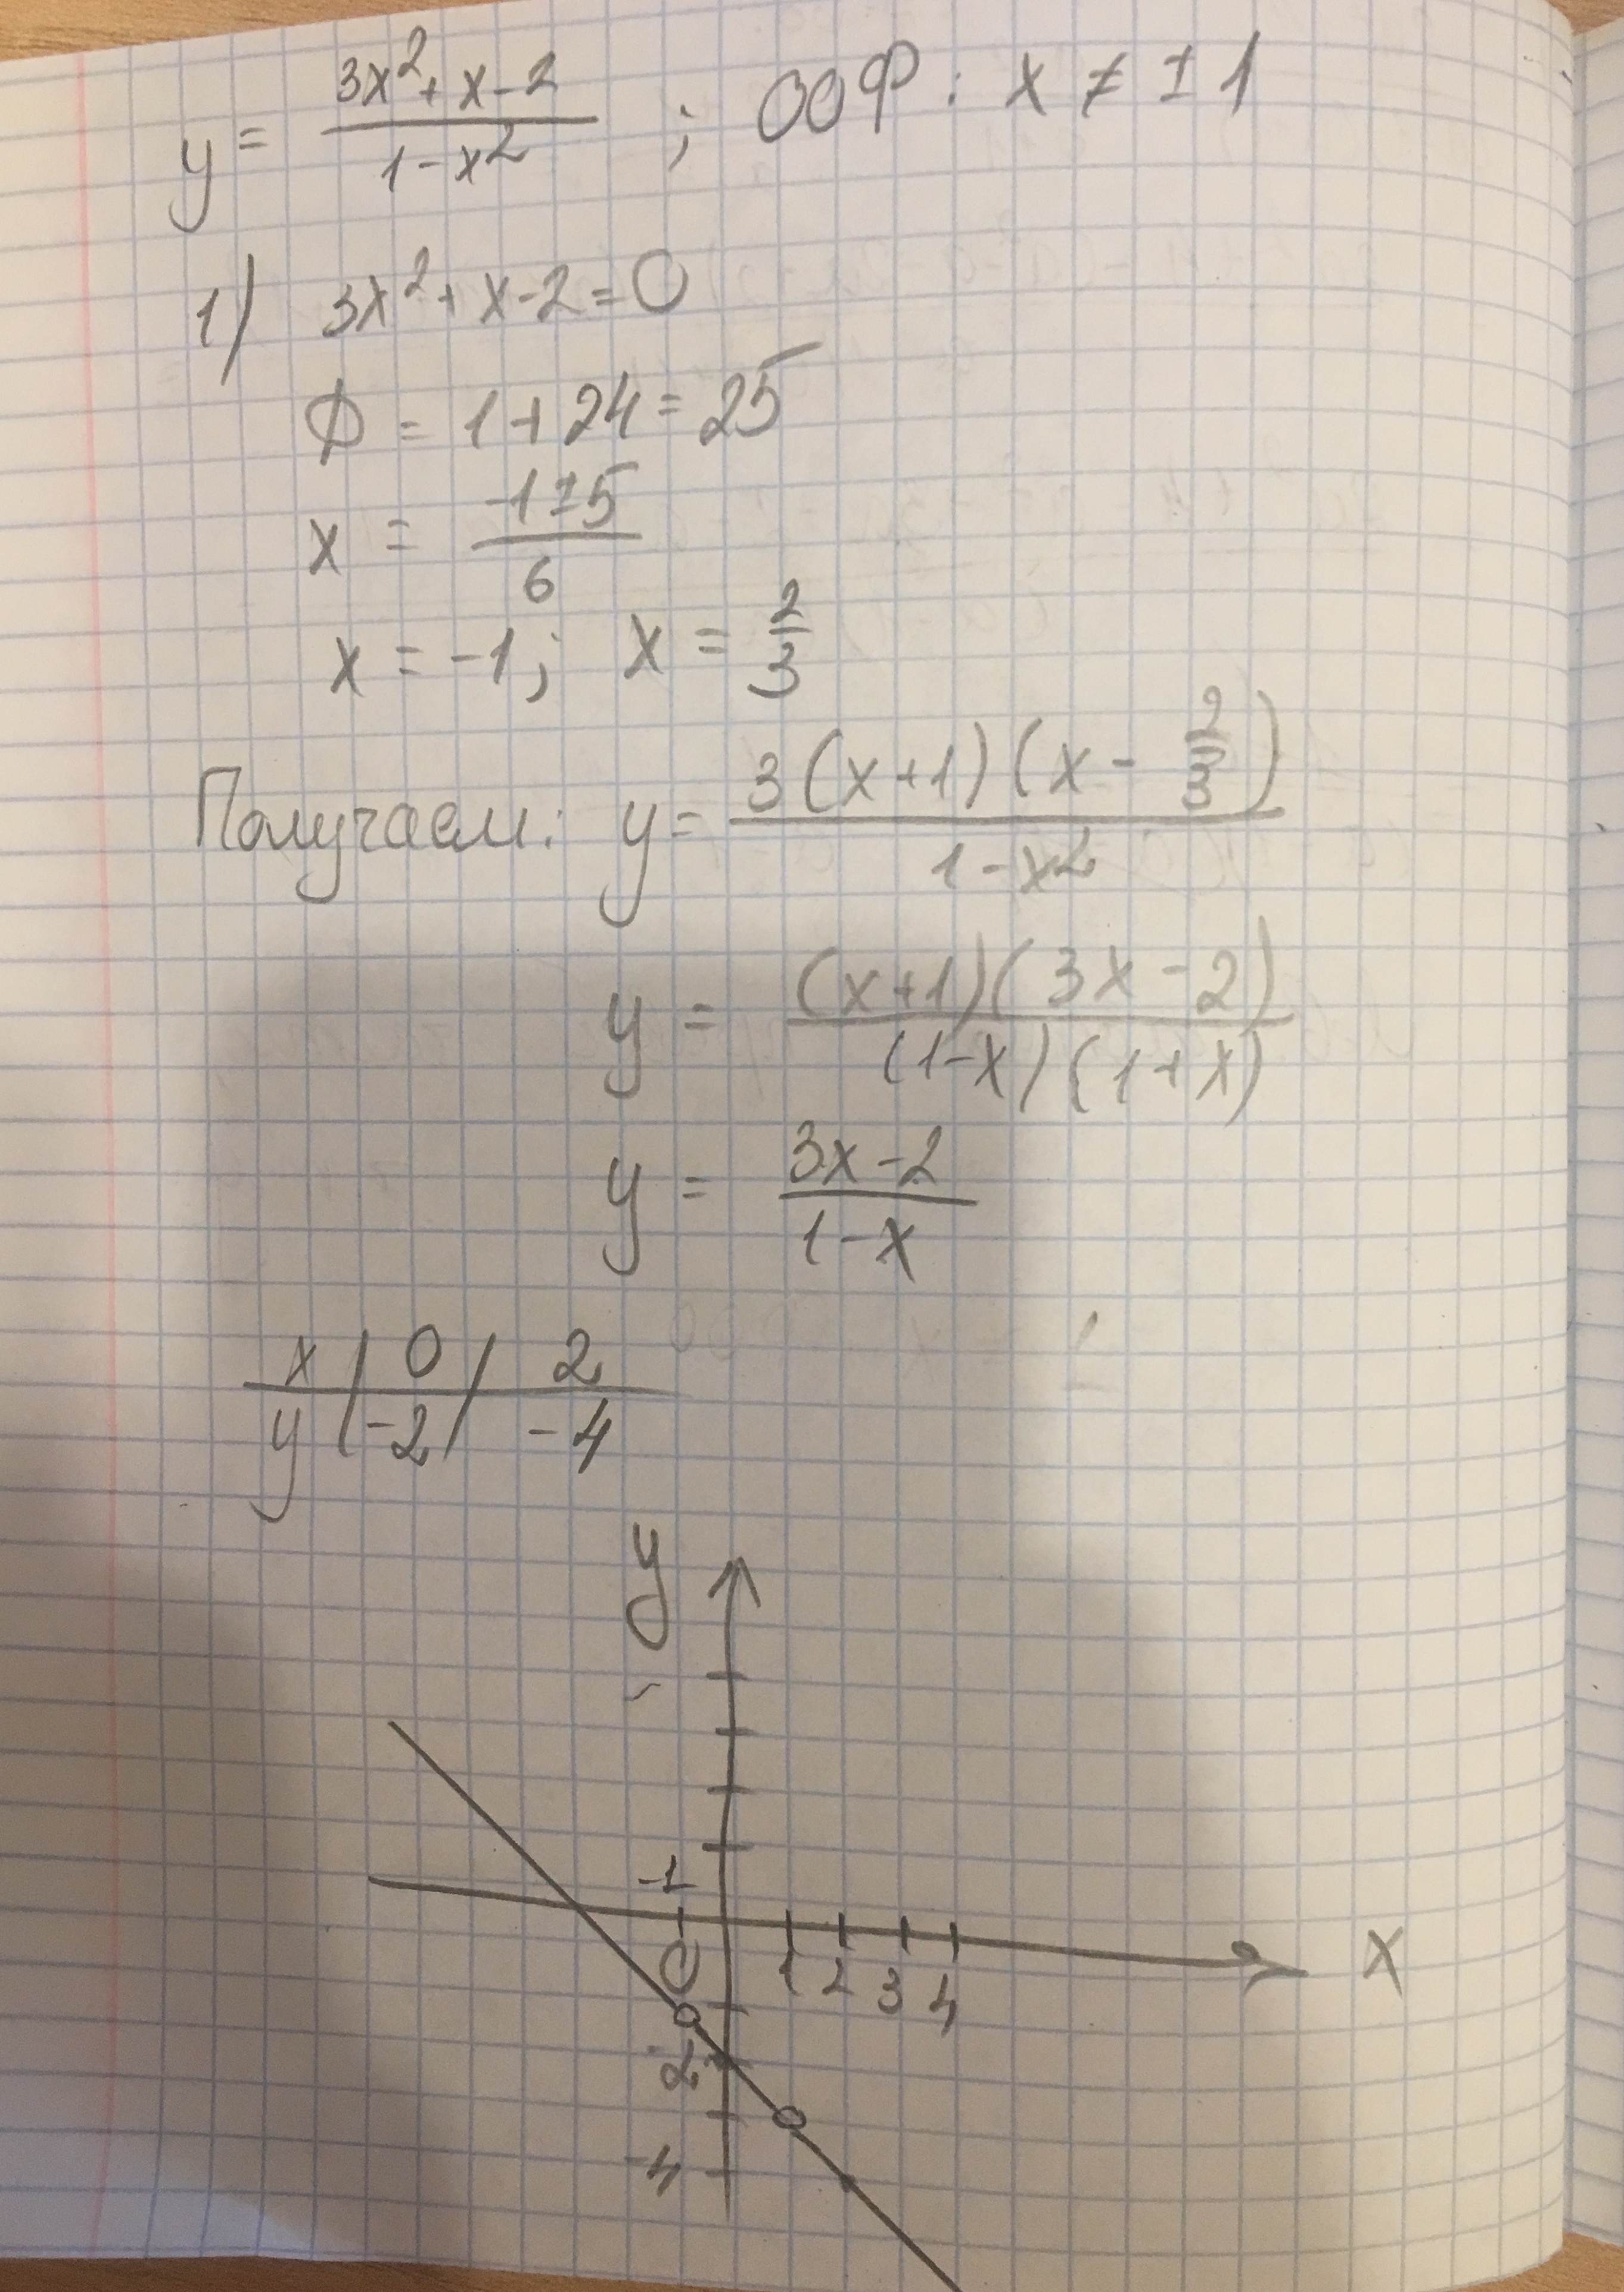 y = (3x² + x - 2)/(1 - x²) ; ООФ : x ≠ ± 1
1) 3x² + x - 2 = 0
D = 1 + 24 = 25
x = (-1 ± 5)/6
x = -1 ; x = 2/3
Получаем: y = 3(x+1)(x - 2/3)/(1 - x²)
y = (x+1)(3x - 2)/(1-x)(1+x)
y = (3x - 2)/(1 - x)
x | 0 | 2
y | -2 | -4
y
-1
1 2 3 4 X
-2
-4